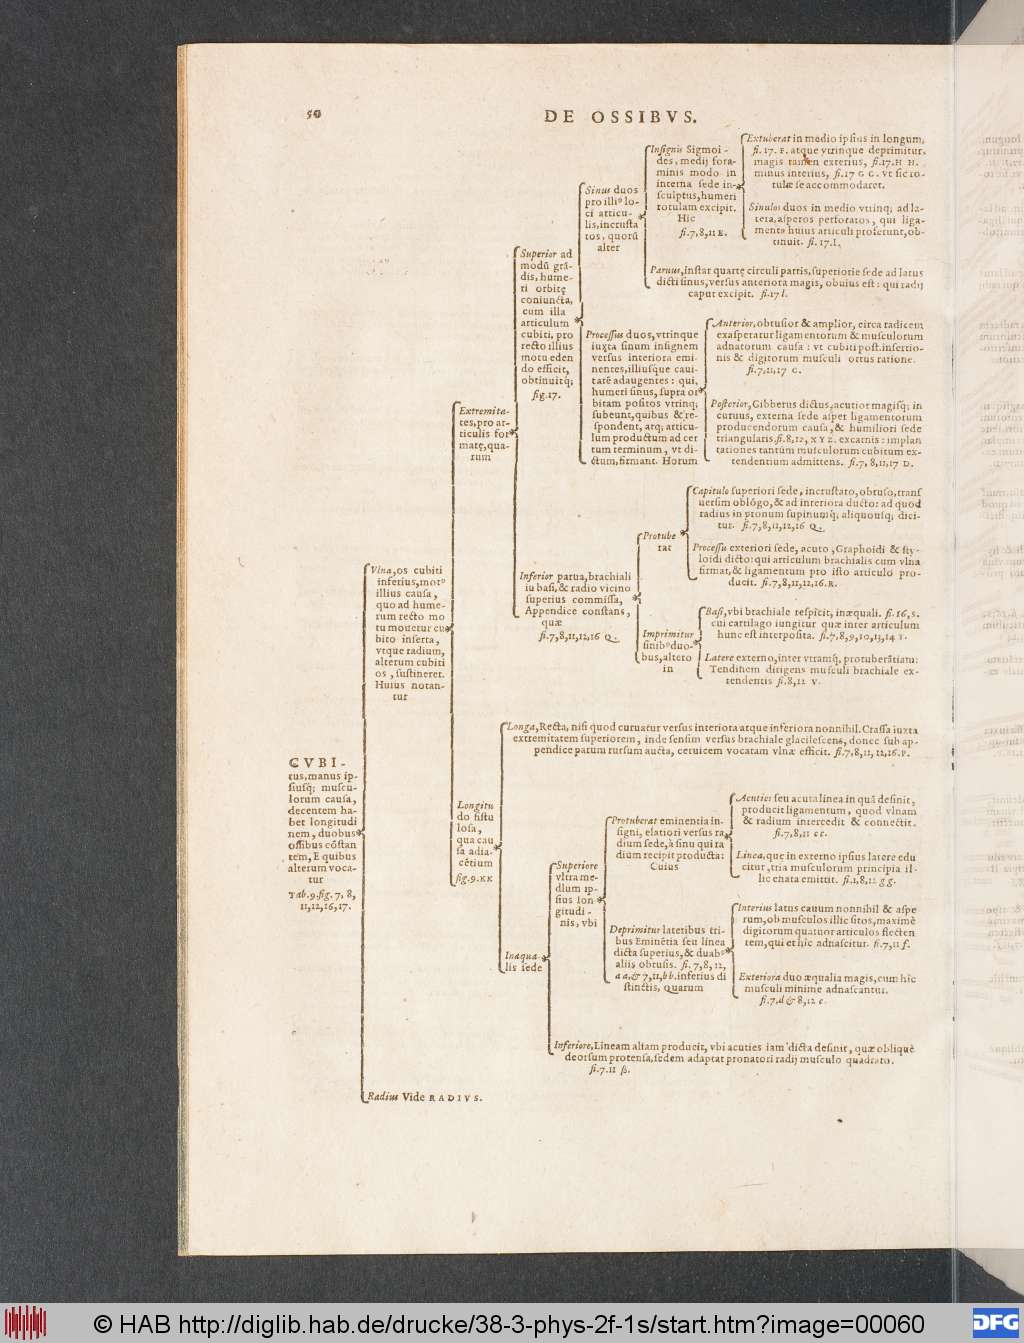 50
DE OSSIBVS.
CVBI-
tus, manus ip-
siusq; muscu-
lorum causa,
decentem ha-
bet longitudi
nem, duobus
ossibus cōstan
tem, E quibus
alterum voca-
tur
Tab.9.fig. 7, 8,
11,12,16,17.
Vlna, os cubiti
inferius, mot⁹
illius causa,
quo ad hume-
rum recto mo
tu mouetur cu
bito inserta,
vtque radium,
alterum cubiti
os, sustineret.
Huius notan-
tur
Extremita-
tes, pro ar-
ticulis for
matę, qua-
rum
Superior ad
modū grā-
dis, hume-
ri orbitę
coniuncta,
cum illa
articulum
cubiti, pro
recto illius
motu eden
do efficit,
obtinuitq;
fig.17.
Sinus duos
pro illi⁹ lo-
ci articu-
lis, incrusta
tos, quorū
alter
Insignis Sigmoi-
des, medij fora-
minis modo in
interna sede in-
sculptus, humeri
rotulam excipit.
Hic
fi.7,8,11 E.
Extuberat in medio ipsius in longum,
fi. 17. F. atque vtrinque deprimitur.
magis tamen exterius, fi.17.H H.
minus interius, fi.17 G G. vt sic ro-
tulæ se accommodaret.
Sinulos duos in medio vtrinq; ad la-
tera, asperos perforatos, qui liga-
menta huius articuli proferunt, ob-
tinuit. fi. 17.I.
Paruus, instar quartę circuli partis, superiorie sede ad latus
dicti sinus, versus anteriora magis, obuius est: qui radij
caput excipit. fi.17 l.
Processus duos, vtrinque
iuxta sinum insignem
versus interiora emi-
nentes, illiusque caui-
tatē adaugentes: qui,
humeri sinus, supra or
bitam positos vtrinq;
subeunt, quibus & re-
spondent, atq; articu-
lum productum ad cer
tum terminum, vt di-
ctum, firmant. Horum
Anterior, obtusior & amplior, circa radicem
exasperatur ligamentorum & musculorum
adnatorum causa: vt cubiti post. insertio-
nis & digitorum musculi ortus ratione.
fi.7,11,17 C.
Posterior, Gibberus dictus, acutior magisq; in
curuus, externa sede asper ligamentorum
producendorum causa, & humiliori sede
triangularis. fi.8,12, X Y Z. excarnis: implan
tationes tantum musculorum cubitum ex-
tendentium admittens. fi.7, 8,11,17 D.
Inferior parua, brachiali
iu basi, & radio vicino
superius commissa,
Appendice constans,
quæ
fi.7,8,11,12,16 Q.
Protube
rat
Capitulo superiori sede, incrustato, obtuso, transf
uersim oblōgo, & ad interiora ducto: ad quod
radius in pronum supinumq; aliquousq; dici-
tur. fi.7,8,11,12,16 Q.
Processu exteriori sede, acuto, Graphoidi & sty-
loidi dicto: qui articulum brachialis cum vlna
firmat, & ligamentum pro isto articulo pro-
ducit. fi.7,8,11,12,16.R.
Imprimitur
sinib⁹ duo-
bus, altero
in
Basi, vbi brachiale respicit, inæquali. fi.16, S.
cui cartilago iungitur quæ inter articulum
hunc est interposita. fi.7,8,9,10,13,14 T.
Latere externo, inter vtramq; protuberātiam:
Tendinem dirigens musculi brachiale ex-
tendentis fi.8,12 V.
Longitu
do fistu
losa,
qua cau
sa adia-
cētium
fig.9.KK
Longa, Recta, nisi quod curuatur versus interiora atque inferiora nonnihil. Crassa iuxta
extremitatem superiorem, inde sensim versus brachiale glacilescens, donec sub ap-
pendice parum rursum aucta, ceruicem vocatam vlnæ efficit. fi.7,8,11,12,16.P.
Inæqua-
lis sede
Superiore
vltra me-
dium ip-
sius lon
gitudi-
nis, vbi
Protuberat eminentia in-
signi, elatiori versus ra
dium sede, à sinu qui ra
dium recipit producta:
Cuius
Acuties seu acuta linea in quā definit,
producit ligamentum, quod vlnam
& radium intercedit & connectit.
fi.7,8,11 cc.
Linea, que in externo ipsius latere edu
citur, tria musculorum principia il-
lic enata emittit. fi.1,8,12 gg.
Deprimitur lateribus tri-
bus Eminētia seu linea
dicta superius, & duab⁹
aliis obtusis. fi. 7, 8, 12,
a a. & 7,11, bb. inferius di
stinctis, Quarum
Interius latus cauum nonnihil & aspe
rum, ob musculos illic sitos, maximè
digitorum quatuor articulos flecten
tem, qui et hic adnascitur. fi.7,11 f.
Exteriora duo æqualia magis, cum hîc
musculi minime adnascantur.
fi.7.d & 8,12 e.
Inferiore, Lineam aliam producit, vbi acuties iam dicta desinit, quæ obliquè
deorsum protensa, sedem adaptat pronatori radij musculo quadrato.
fi.7.11 β.
Radius Vide RADIVS.
© HAB http://diglib.hab.de/drucke/38-3-phys-2f-1s/start.htm?image=00060
DFG